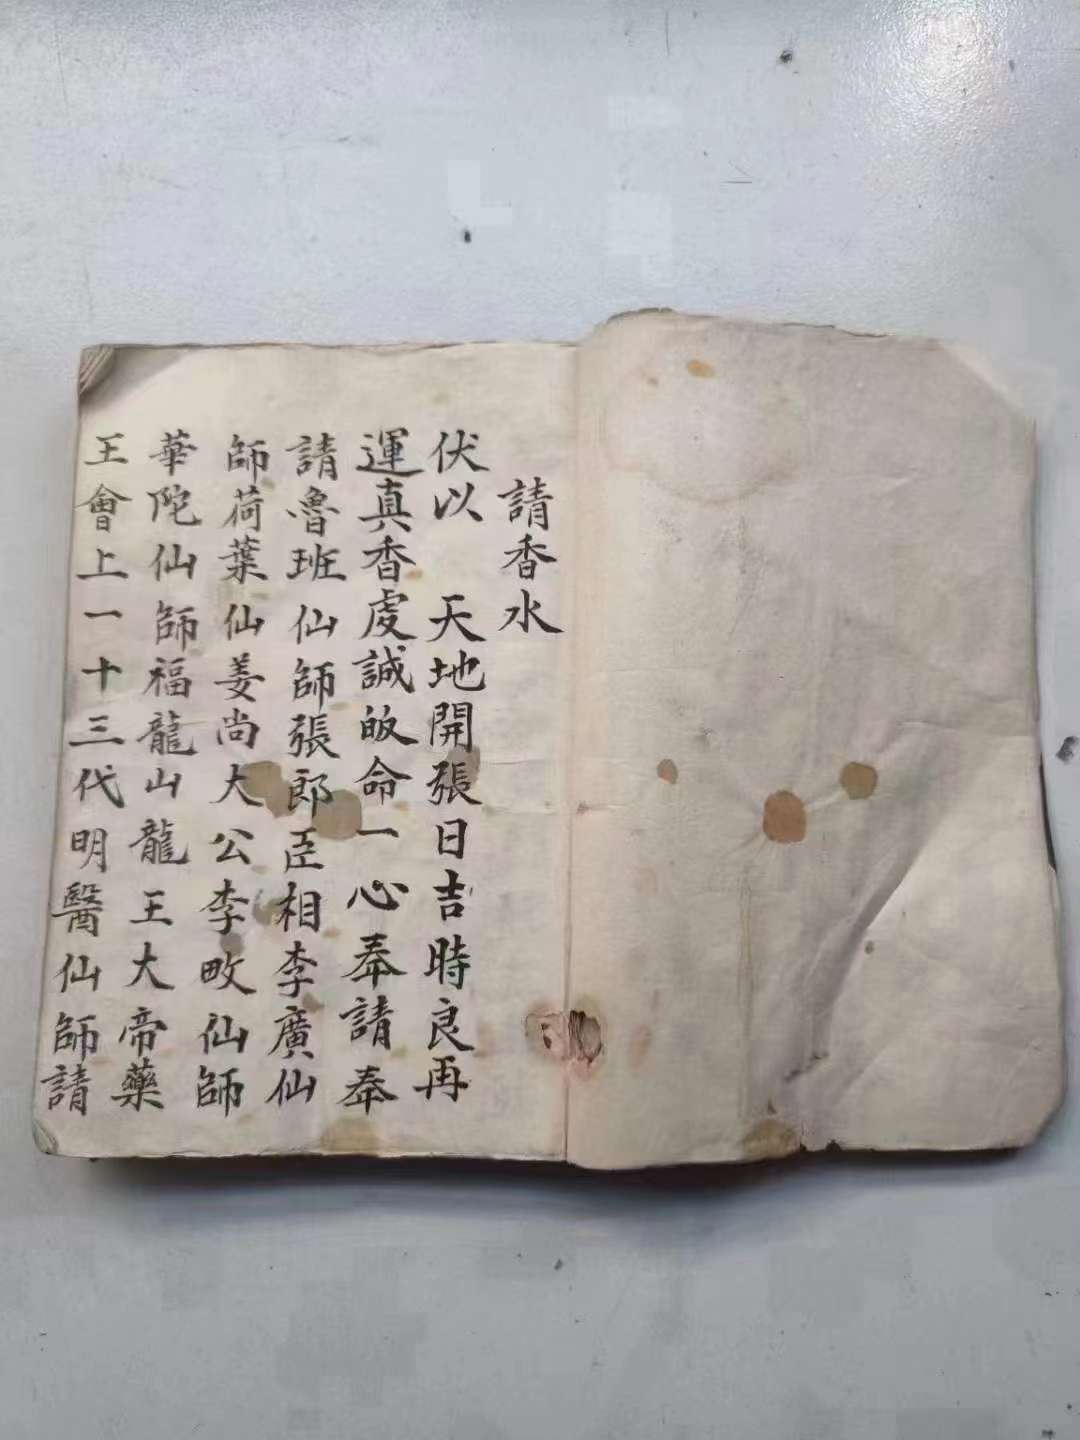 請香水
伏以 天地開張日吉時良再
運真香虔誠皈命一心奉請奉
請魯班仙師張郎臣相李廣仙
師荷葉仙姜尚大公李畋仙師
華陀仙師福龍山龍王大帝藥
王會上一十三代明醫仙師請